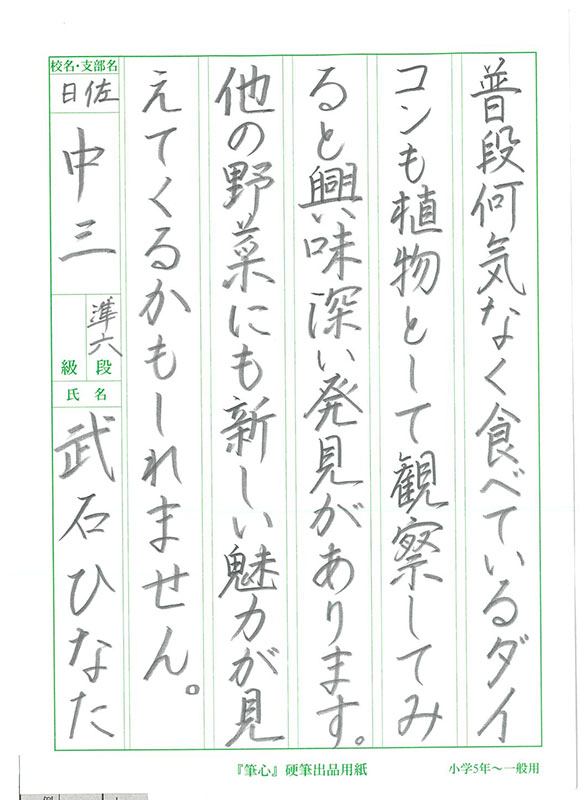 普段何気なく食べているダイ
コンも植物として観察してみ
ると興味深い発見があります。
他の野菜にも新しい魅力が見
えてくるかもしれません。
校名・支部名
日佐
中三
準六
段
級
氏名
武石ひなた
『筆心』硬筆出品用紙
小学5年〜一般用